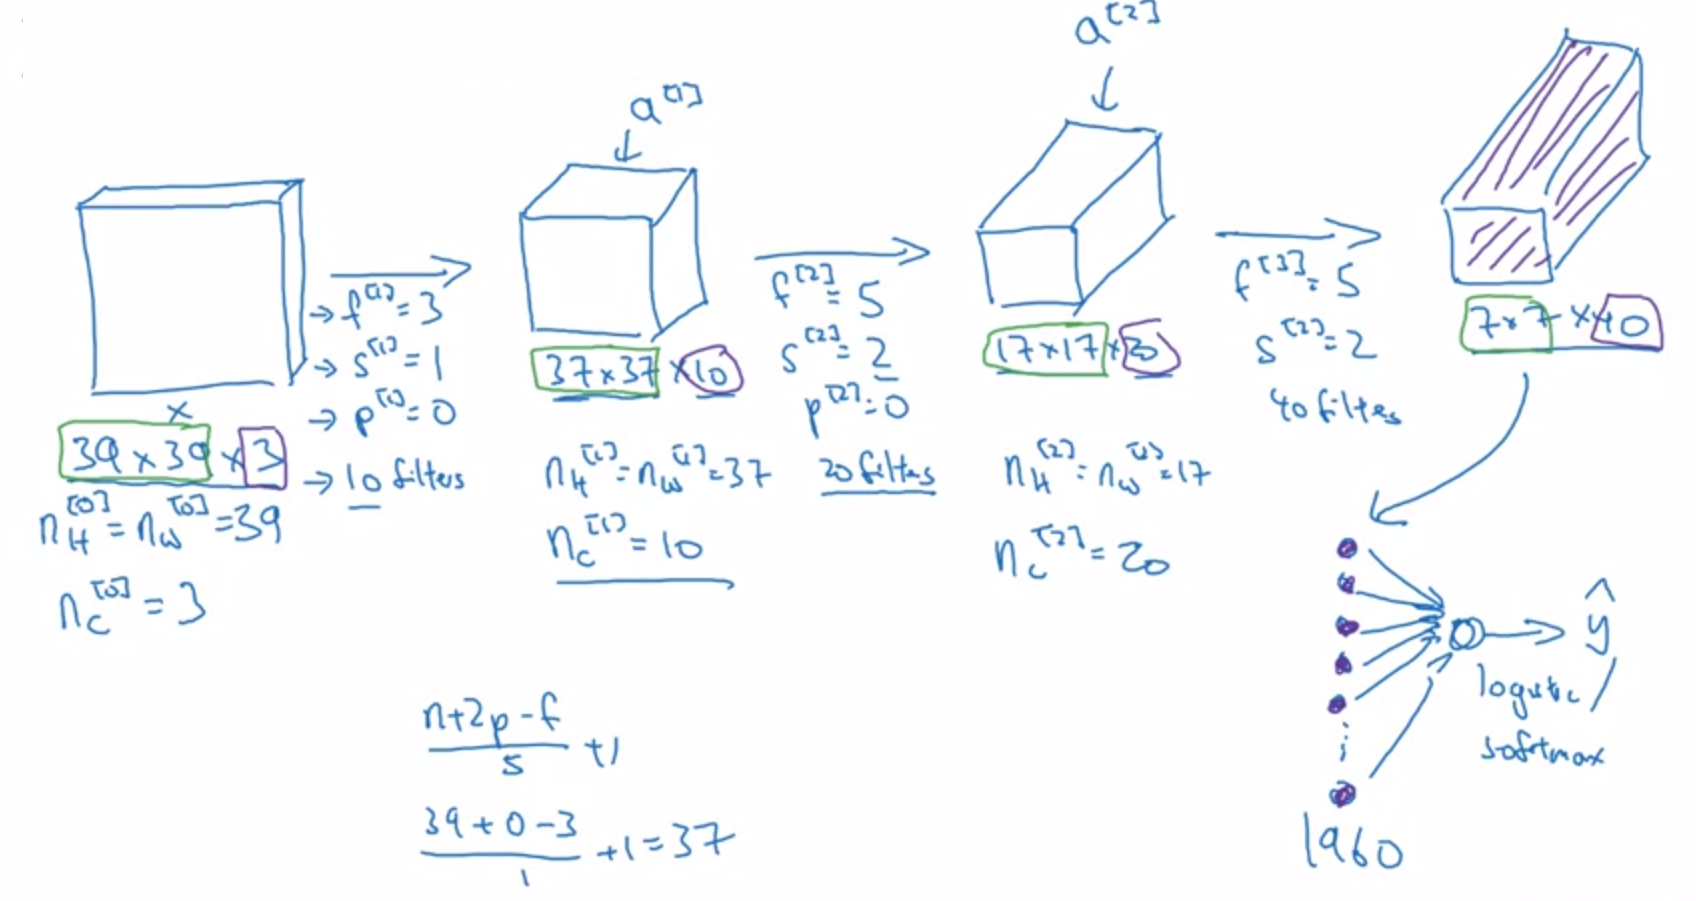 a^[1]
a^[2]
x
39 x 39 x 3
n_H^[0] = n_W^[0] = 39
n_C^[0] = 3
→ f^[1] = 3
→ s^[1] = 1
→ p^[1] = 0
→ 10 filters
37 x 37 x 10
n_H^[1] = n_W^[1] = 37
n_C^[1] = 10
f^[2] = 5
s^[2] = 2
p^[2] = 0
20 filters
17 x 17 x 20
n_H^[2] = n_W^[2] = 17
n_C^[2] = 20
f^[3] = 5
s^[2] = 2
40 filters
7 x 7 x 40
ŷ
logistic /
softmax
1960
(n+2p-f)/s +1
(39+0-3)/1 +1 = 37